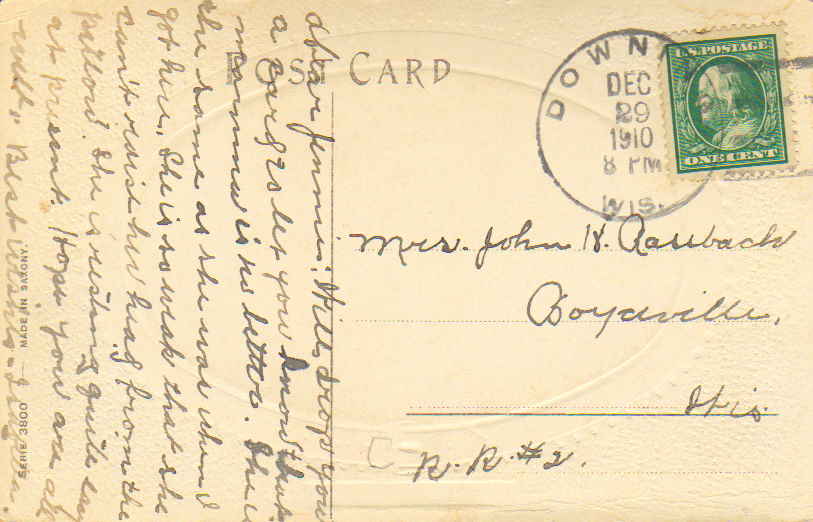 POST CARD
DOWNI
DEC
29
1910
8 PM
WIS.
U.S. POSTAGE
ONE CENT
Mrs. John H. Rassbach
Boyceville,
Wis.
R. R. #2.
Dear Jennie: Will drop you
a card & let you know that
mamma is no better. She is
the same as she was when I
got her. She is so weak that she
can't raise her head from the
pillow. She is resting quite easy
at present. Hope you are all
well. Best wishes -
SERIE 3800 MADE IN SAXONY.